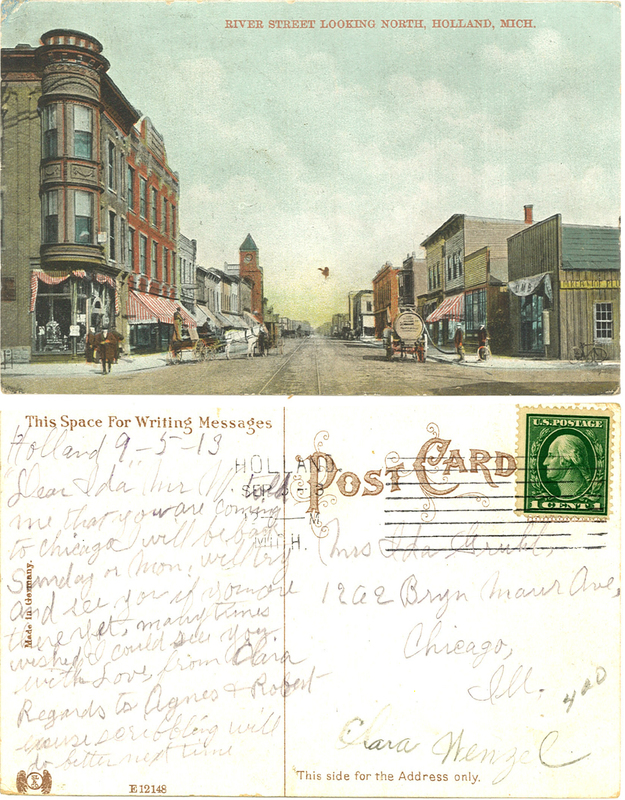 RIVER STREET LOOKING NORTH, HOLLAND, MICH.
This Space For Writing Messages
Holland 9-5-13
Dear Ida Mr
me that you are coming
to Chicago will be
Sunday or Mon, will try
and see you if you are
there yet, many times
wished I could see you.
with Love, from Clara
Regards to Agnes & Robert
excuse scribbling will
do better next time
Made in Germany.
E 12148
POST CARD
HOLLAND
SEP
MICH.
U.S. POSTAGE
1 CENT 1
Mrs Ida
1202 Bryn Mawr Ave,
Chicago,
Ill.
Clara Wenzel.
This side for the Address only.